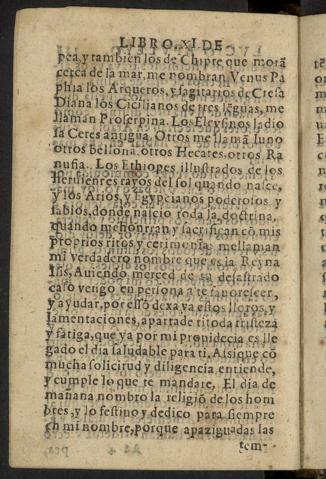 LIBRO. XI. DE
pea, y tambien los de Chipre que morã
cerca de la mar, me nombran Venus Pa
phia los Arqueros, y sagitarios de Creta
Diana los Cicilianos de tres lẽguas, me
llaman Proserpina. Los Eleusinos la dio
sa Ceres antigua. Otros me llamã Iuno
otros bellona, otros Hecates, otros Ra
nusia. Los Ethiopes, illustrados de los
heruientes rayos del sol quando nasce,
y los Arios, y Egypcianos poderosos y
sabios, donde nascio toda la doctrina,
quando me honrran y sacrifican cõ mis
proprios ritos y cerimonias me llaman
mi verdadero nombre que es la Reyna
Isis, Auiendo merced de tu desastrado
caso vengo en persona a te fauorescer,
y ayudar, por esso dexa ya estos lloros, y
lamentaciones, aparta de ti toda tristeza
y fatiga, que ya por mi prouidẽcia es lle
gado el dia saludable para ti. Assi que cõ
mucha solicitud y diligencia entiende,
y cumple lo que te mandare. El dia de
mañana nombro la religiõ de los hom
bres, y lo festino y dedico para siempre
en mi nombre, porque apaziguadas las
tem-